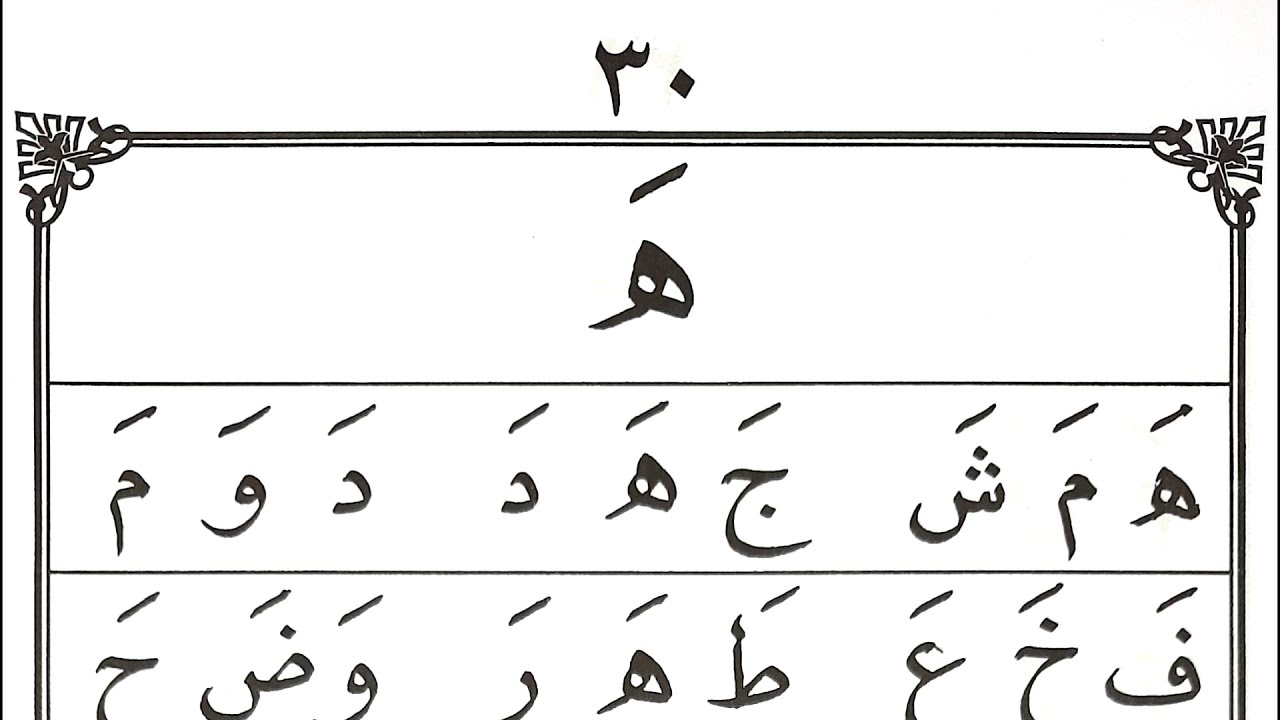 ٣٠
هَ
هَ مَ شَ جَ هَ دَ دَ وَ مَ
فَ خَ عَ طَ هَ رَ وَ ضَ حَ